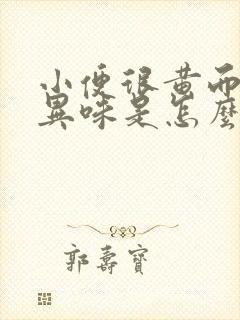 小便很黃而
異味是怎麼
郭壽寶